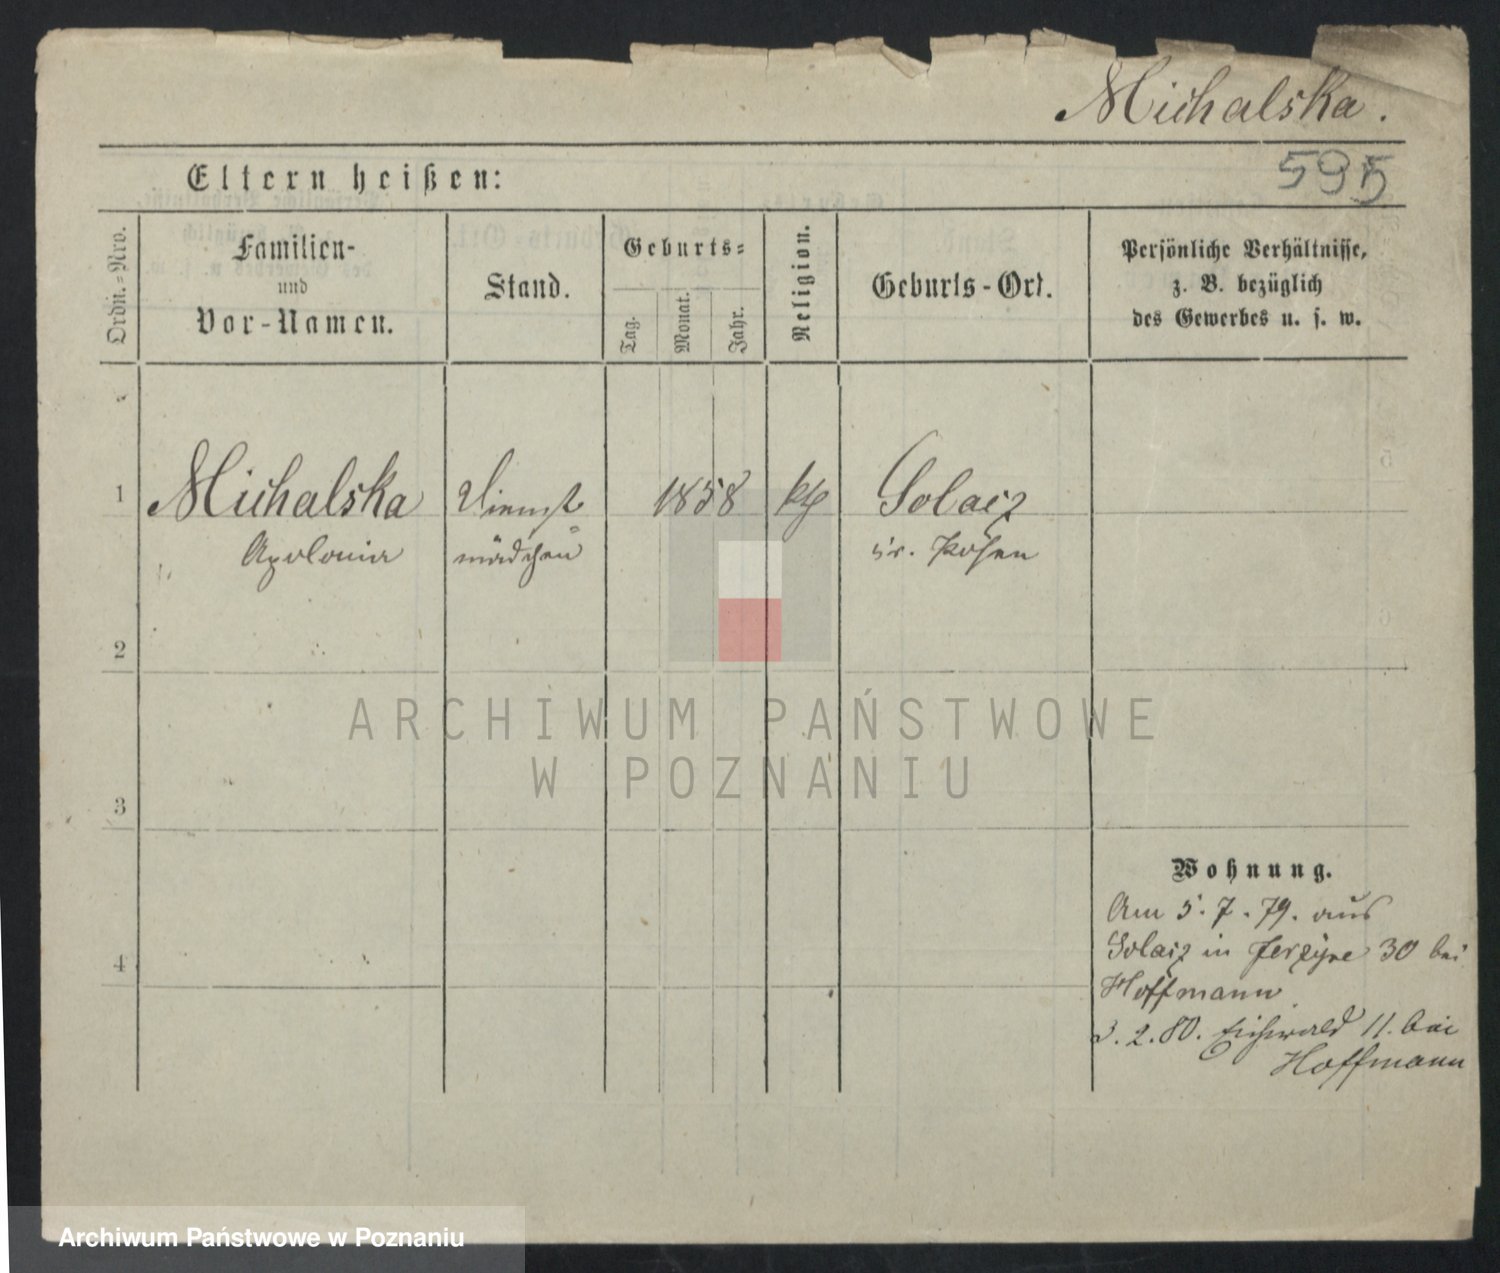 Michalska.
595
Eltern heißen:
Ordn.-Nro.
Familien-
und
Vor-Namen.
Stand.
Geburts-
Tag.
Monat.
Jahr.
Religion.
Geburts-Ort.
Persönliche Verhältnisse,
z. B. bezüglich
des Gewerbes u. s. w.
1
Michalska
Apolonia
Dienst
mädchen
1858
kth
Solacz
Kr. Posen
2
3
4
Wohnung.
Am 5.7.79. aus
Solacz in Jerzyce 30 bei
Hoffmann
3.2.80. Eichwald 11. bei
Hoffmann
ARCHIWUM PAŃSTWOWE
W POZNANIU
Archiwum Państwowe w Poznaniu